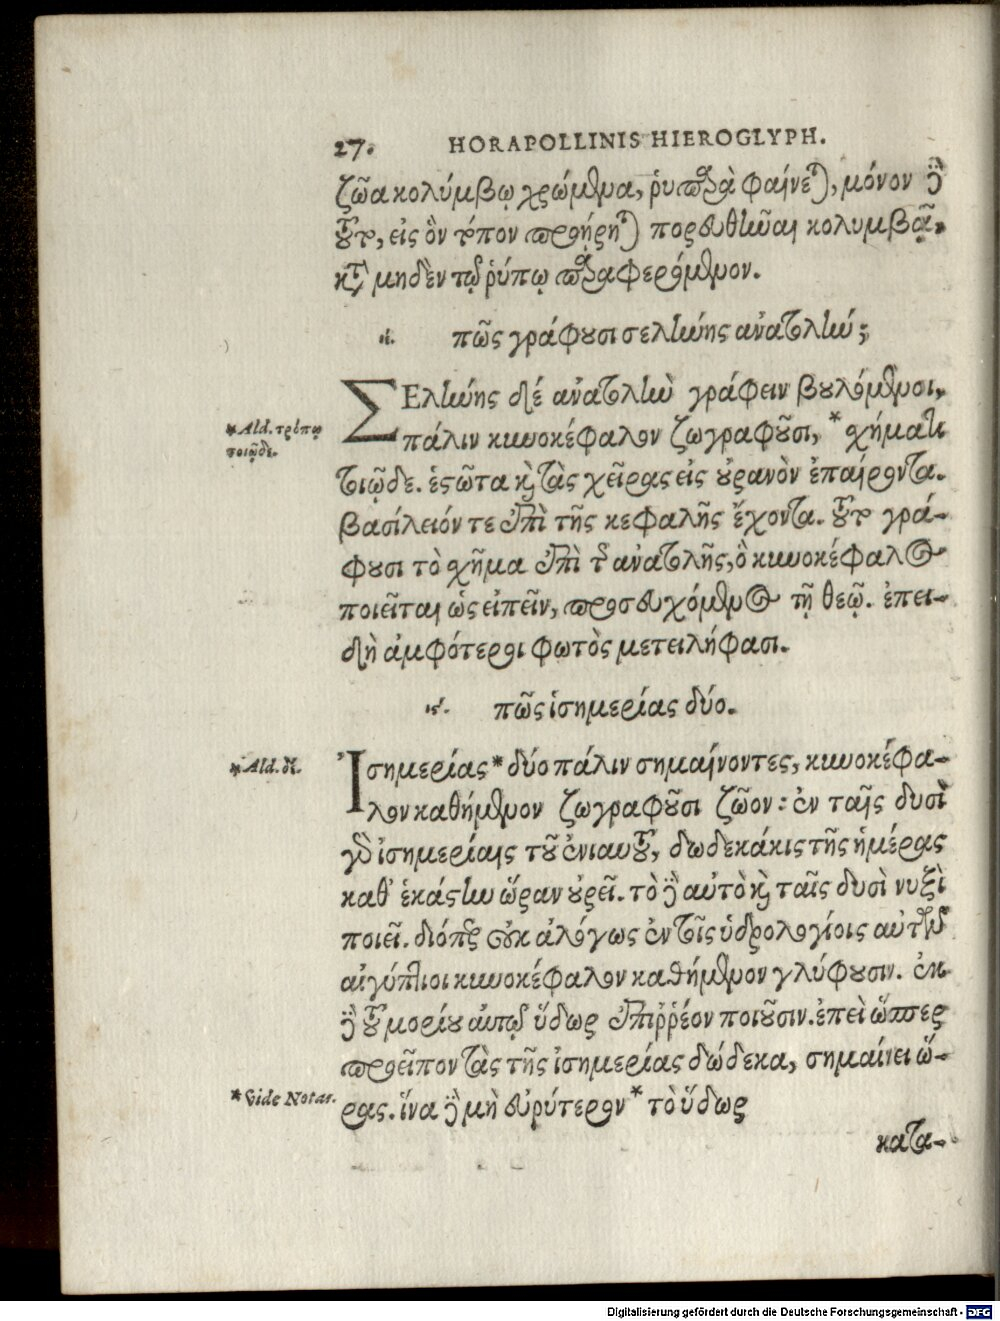 27. HORAPOLLINIS HIEROGLYPH.
ζῶα κολύμβῳ χρώμενα, ῥυπαρὰ φαίνεται, μόνον δὲ
τοῦτο, εἰς ὃν τόπον προῄρηται πορευθῆναι κολυμβᾷ,
κατὰ μηδὲν τῷ ῥύπῳ παραφερόμενον.
ιε. πῶς γράφουσι σελήνης ἀνατολήν;
ΣΕλήνης δὲ ἀνατολὴν γράφειν βουλόμενοι,
πάλιν κυνοκέφαλον ζωγραφοῦσι, * χήματι
*Ald. τρόπῳ
ποιῷδε.
τοιῷδε. ἑστῶτα καὶ τὰς χεῖρας εἰς οὐρανὸν ἐπαίροντα.
βασίλειόν τε ἐπὶ τῆς κεφαλῆς ἔχοντα. τοῦτο γρά-
φουσι τὸ χῆμα ἐπὶ τῆς ἀνατολῆς, ὃ κυνοκέφαλος
ποιεῖται ὡς εἰπεῖν, προσευχόμενος τῇ θεῷ. ἐπει-
δὴ ἀμφότεροι φωτὸς μετειλήφασι.
ιϛ. πῶς ἰσημερίας δύο.
*Ald. δὲ.
Ἰσημερίας * δύο πάλιν σημαίνοντες, κυνοκέφα-
λον καθήμενον ζωγραφοῦσι ζῶον: ἐν ταῖς δυσὶ
γὰρ ἰσημερίαις τοῦ ἐνιαυτοῦ, δωδεκάκις τῆς ἡμέρας
καθ' ἑκάστην ὥραν οὐρεῖ. τὸ δὲ αὐτὸ καὶ ταῖς δυσὶ νυξὶ
ποιεῖ. διόπερ οὐκ ἀλόγως ἐν τοῖς ὑδρολογίοις αὐτῶν
αἰγύπτιοι κυνοκέφαλον καθήμενον γλύφουσιν. ἐκ
δὲ τοῦ μορίου αὐτοῦ ὕδωρ ἐπιῤῥέον ποιοῦσιν. ἐπεὶ ὥσπερ
προεῖπον τὰς τῆς ἰσημερίας δώδεκα, σημαίνει ὥ-
*Vide Notas.
ρας. ἵνα δὲ μὴ εὐρύτερον * τὸ ὕδωρ
κατα-
Digitalisierung gefördert durch die Deutsche Forschungsgemeinschaft - DFG